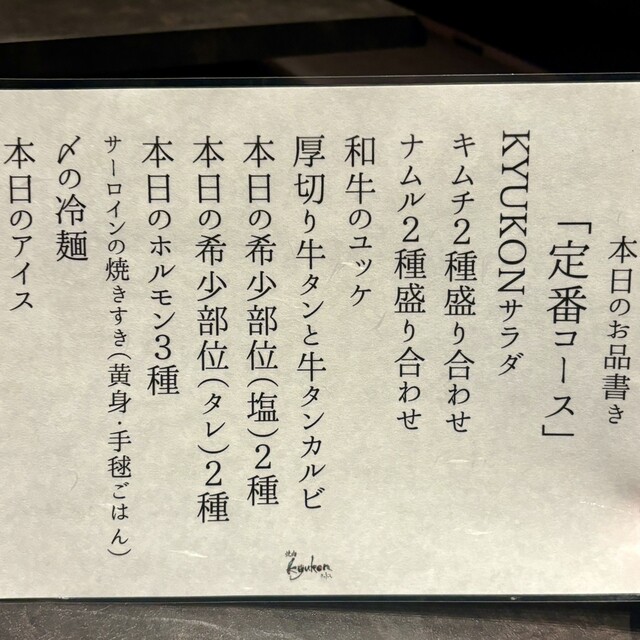 本日のお品書き
「定番コース」
KYUKONサラダ
キムチ2種盛り合わせ
ナムル2種盛り合わせ
和牛のユッケ
厚切り牛タンと牛タンカルビ
本日の希少部位(塩)2種
本日の希少部位(タレ)2種
本日のホルモン3種
サーロインの焼きすき(黄身・手毬ごはん)
〆の冷麺
本日のアイス
焼肉
kyukon